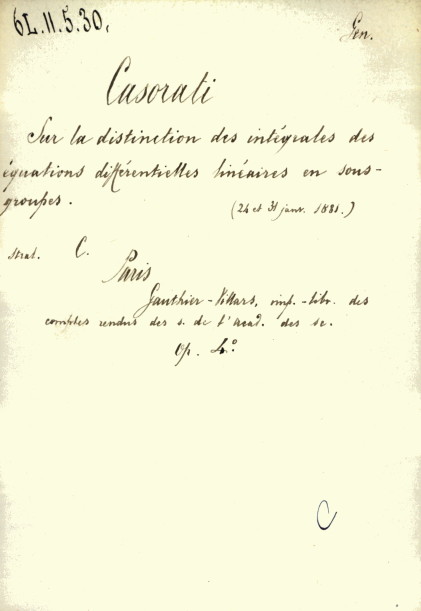 6L.11.5.30.
Gen.
Casorati
Sur la distinction des intégrales des
équations différentielles linéaires en sous-
groupes.
(24 et 31 janv. 1881.)
Strat. C.
Paris
Gauthier-Villars, imp.-libr. des
comptes rendus des s. de l'acad. des sc.
Op. 4.°
C